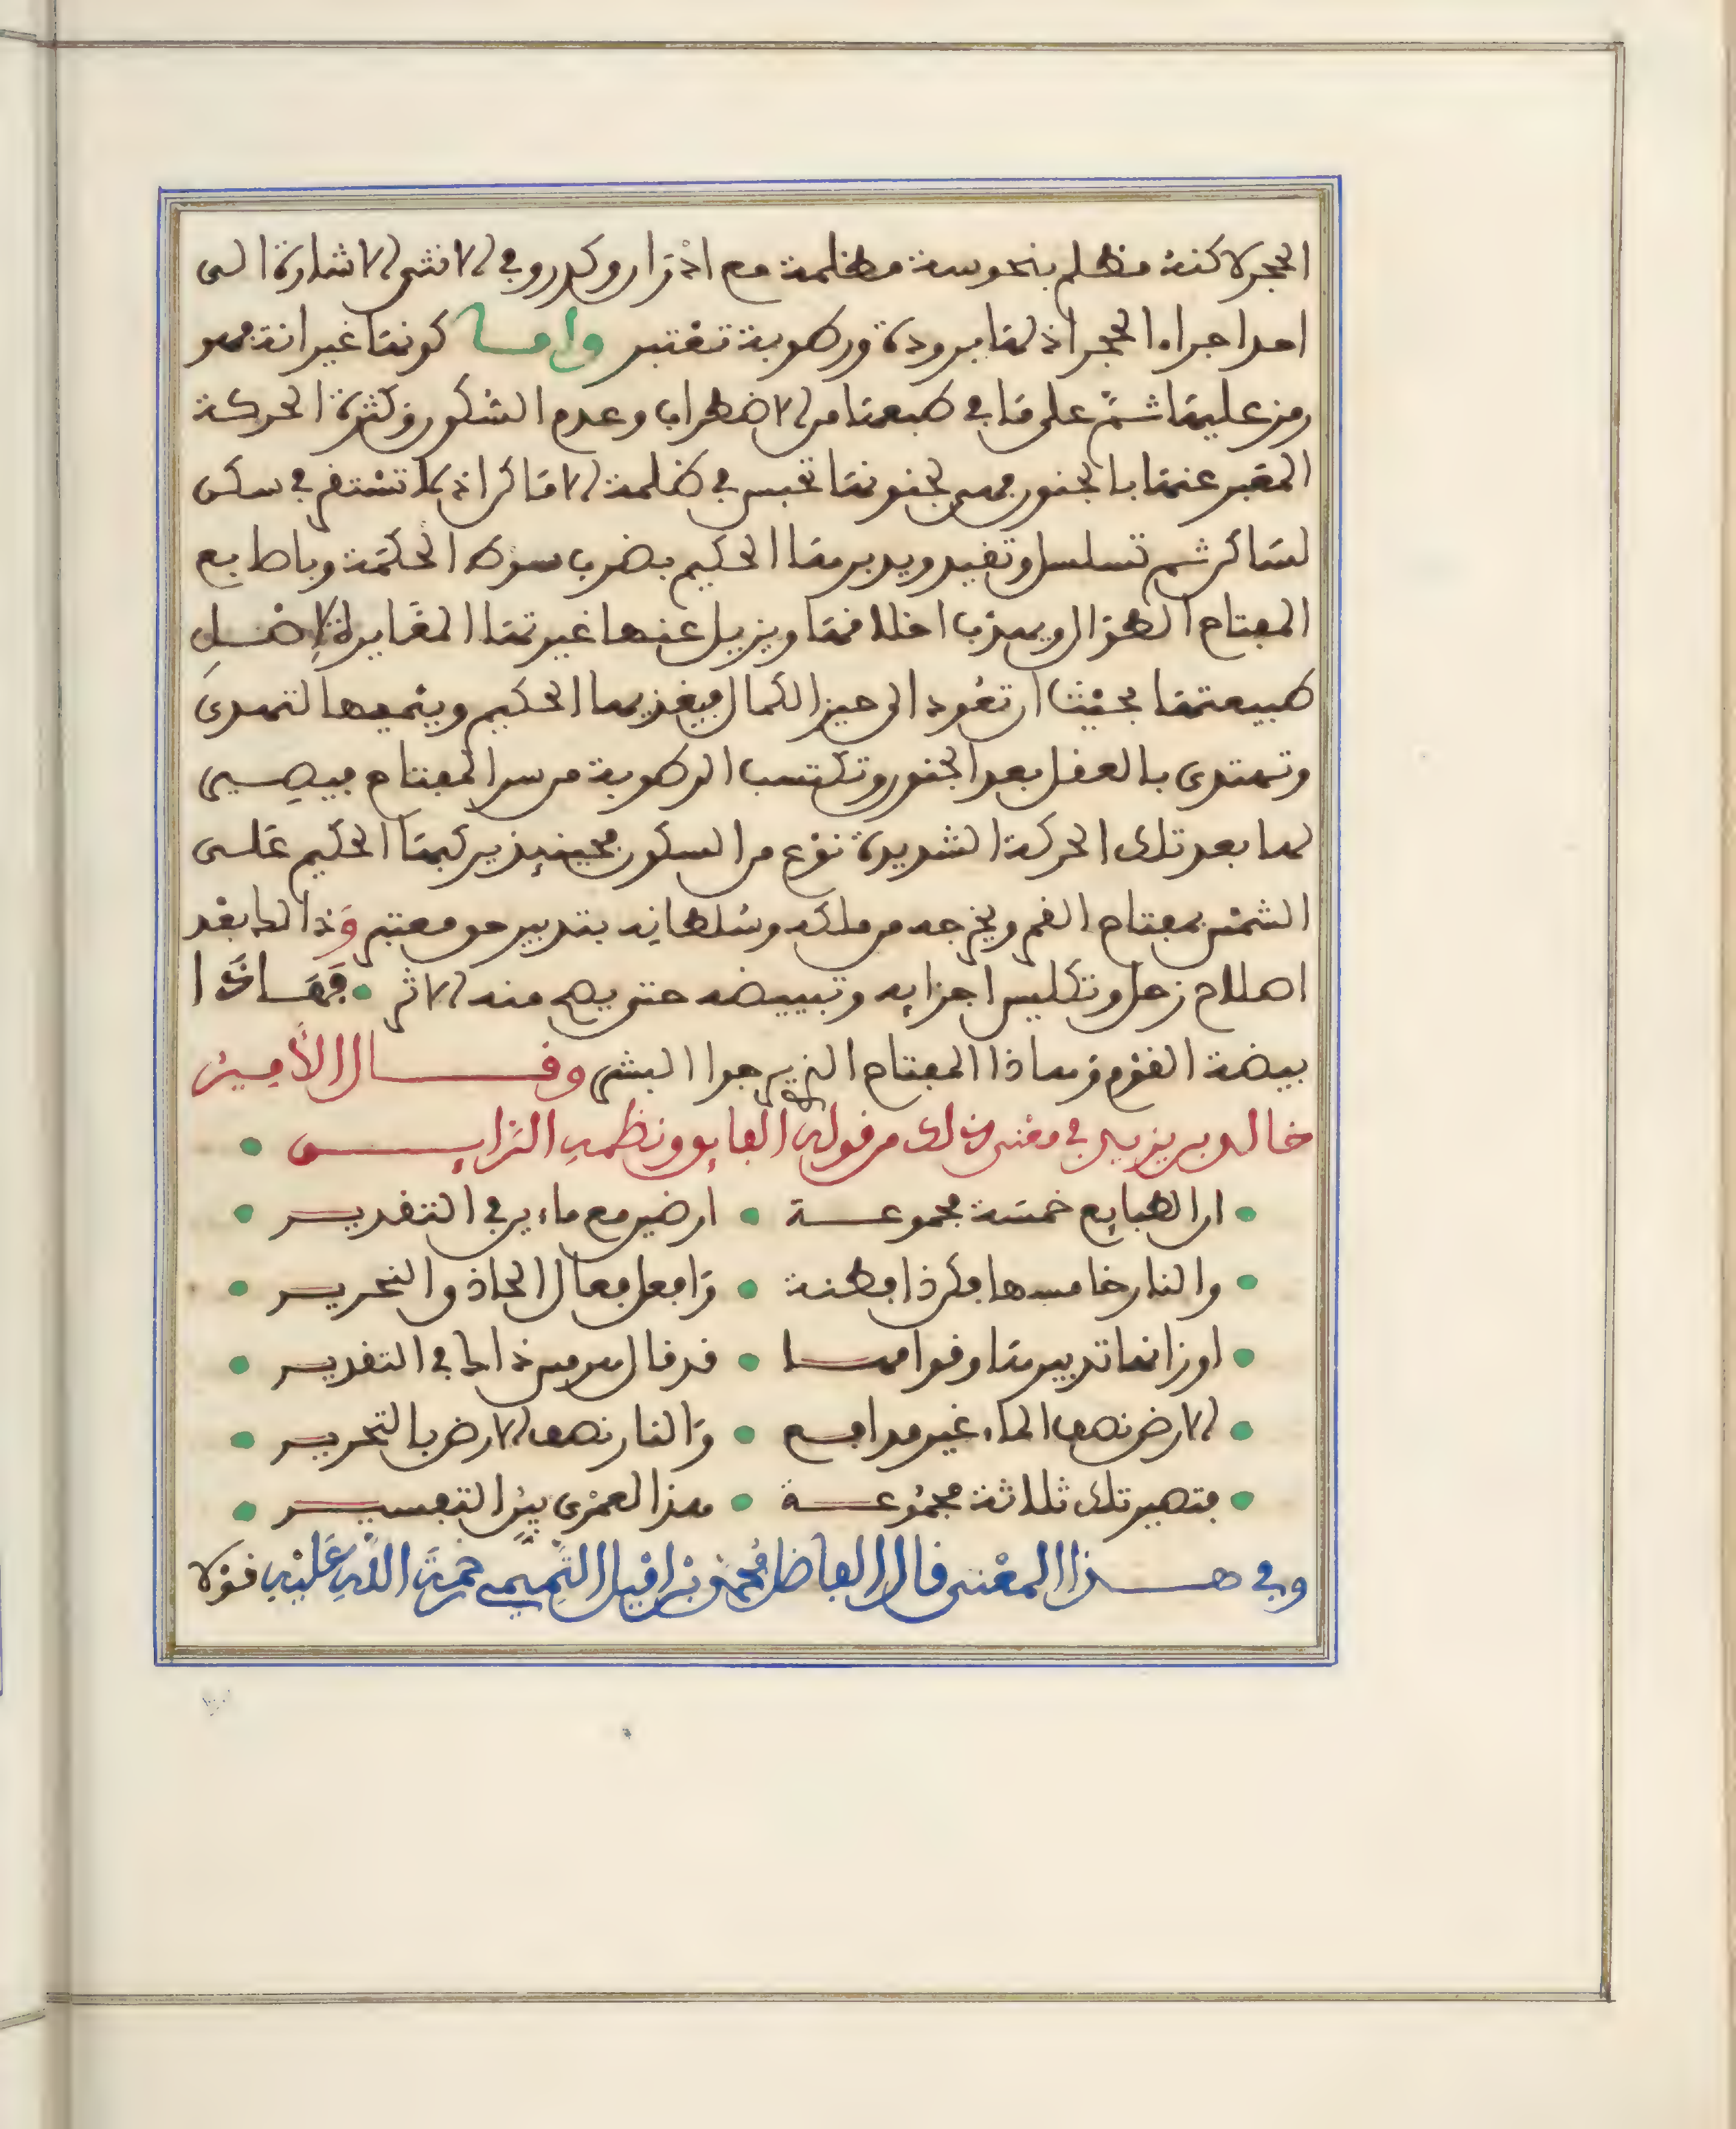 الحجر لاكنه مظلم بنحوسة مظلمة مع اذزار وكدر وفي الانثى الاشارة الى
احد اجزاء الحجر اذ لها برودة ورطوبة تعتبر واما كونها غيرانة فهو
رمز عليها ثم على ما في طبعها من الاضطراب وعدم السكون وكثرة الحركة
المعبر عنها بالجنون فهي لجنونها تحبس في ظلمة الاماكن اذ لا تستقر في سكن
لساكن ثم تسلسل وتقيد ويدبرها الحكيم بضرب سوط الحكمة وباطابع
المفتاح الطوال ويهذب اخلاقها ويزيل عنها غيرتها المغايرة لاصل
طبيعتها بحيث ان تعود الى حيز الكمال فيغذيها الحكيم وينميها لتهدى
وتهتدى بالعقل بعد الجنون وتكتسب الرطوبة من سر المفتاح فيصيى
لها بعد تلك الحركة الشديدة نوع من السكون فحينيذ يركبها الحكيم على
الشمس بمفتاح القمر ويخرجه من ملكه وسلطانه بتدبير هو معتبر وذالك بعد
اصلاح زحل وتكليس اجزايه وتبييضه حتى يصح منه الاثر فهاذا
بيضة القوم وهاذا المفتاح الذي حير البشر وقال الأمير
خالد بن يزيد في معنى ذلك من قوله الفايق ونظمه الرايى
ان الطبايع خمسة مجموعة ارضين مع ماءين في التقدير
والنار خامسها فكن ذا فطنة وافعل فعال الحاذق النحرير
اوزانها تدبيرها وقوامها قد قال هرمس ذالك في التقدير
الارض نصف الماء غير مدافع والنار نصف الارض بالتحرير
فتصير تلك ثلاثة مجموعة هذا لعمرى بين التفسير
وفي هذا المعنى قال الفاضل محمد بن اميل التميمي رحمة الله عليه قولا